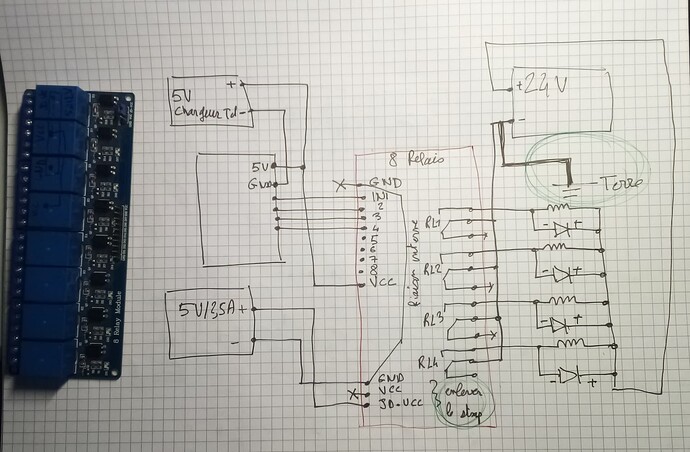 8 Relay Module
+
5V
Chargeur Tel -
5V
Gnd
5V/3,5A +
-
8 Relais
GND
IN1
2
3
4
5
6
7
8
VCC
liaison interne
RL1
RL2
RL3
RL4
GND
VCC
JD-VCC
enlever
le strap
+ 24V
-
Terre
- +
- +
- +
- +